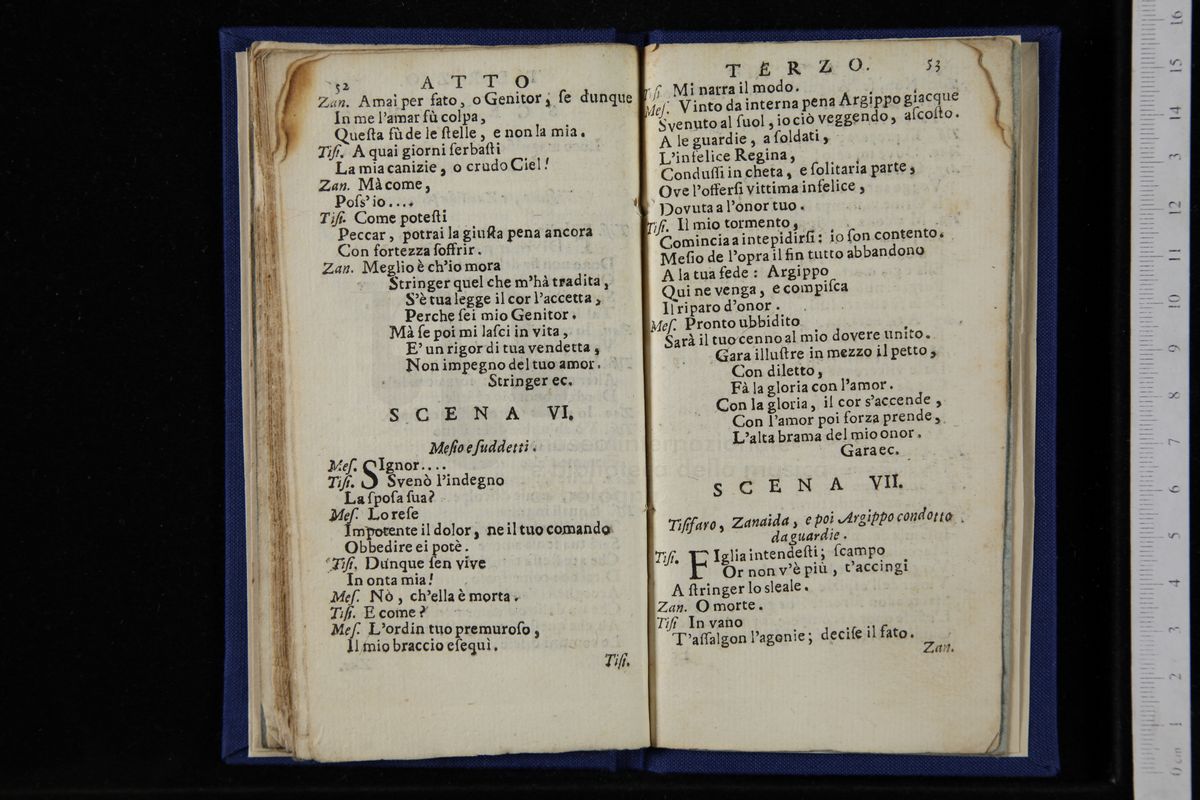 52 ATTO
Zan. Amai per fato, o Genitor, ſe dunque
In me l'amar fù colpa,
Queſta fù de le ſtelle, e non la mia.
Tiſi. A quai giorni ſerbaſti
La mia canizie, o crudo Ciel!
Zan. Mà come,
Poſs'io....
Tiſi. Come poteſti
Peccar, potrai la giuſta pena ancora
Con fortezza ſoffrir.
Zan. Meglio è ch'io mora
Stringer quel che m'hà tradita,
S'è tua legge il cor l'accetta,
Perche ſei mio Genitor.
Mà ſe poi mi laſci in vita,
E' un rigor di tua vendetta,
Non impegno del tuo amor.
Stringer ec.
SCENA VI.
Meſio e ſuddetti.
Meſ. SIgnor....
Tiſi. Svenò l'indegno
La ſpoſa ſua?
Meſ. Lo reſe
Impotente il dolor, ne il tuo comando
Obbedire ei potè.
Tiſi. Dunque ſen vive
In onta mia!
Meſ. Nò, ch'ella è morta.
Tiſi. E come?
Meſ. L'ordin tuo premuroſo,
Il mio braccio eſequì.
Tiſi.
TERZO. 53
Tiſi Mi narra il modo.
Meſ. Vinto da interna pena Argippo giacque
Svenuto al ſuol, io ciò veggendo, aſcoſto.
A le guardie, a ſoldati,
L'infelice Regina,
Conduſſi in cheta, e ſolitaria parte,
Ove l'offerſi vittima infelice,
Dovuta a l'onor tuo.
Tiſi. Il mio tormento,
Comincia a intepidirſi: io ſon contento.
Meſio de l'opra il fin tutto abbandono
A la tua fede: Argippo
Qui ne venga, e compiſca
Il riparo d'onor.
Meſ. Pronto ubbidito
Sarà il tuo cenno al mio dovere unito.
Gara illuſtre in mezzo il petto,
Con diletto,
Fà la gloria con l'amor.
Con la gloria, il cor s'accende,
Con l'amor poi forza prende,
L'alta brama del mio onor.
Gara ec.
SCENA VII.
Tiſifaro, Zanaida, e poi Argippo condotto
da guardie.
Tiſi. FIglia intendeſti; ſcampo
Or non v'è più, t'accingi
A ſtringer lo sleale.
Zan. O morte.
Tiſi In vano
T'aſſalgon l'agonie; deciſe il fato.
Zan.
museo internazionale
e biblioteca della musica
0 cm 1 2 3 4 5 6 7 8 9 10 11 12 13 14 15 16